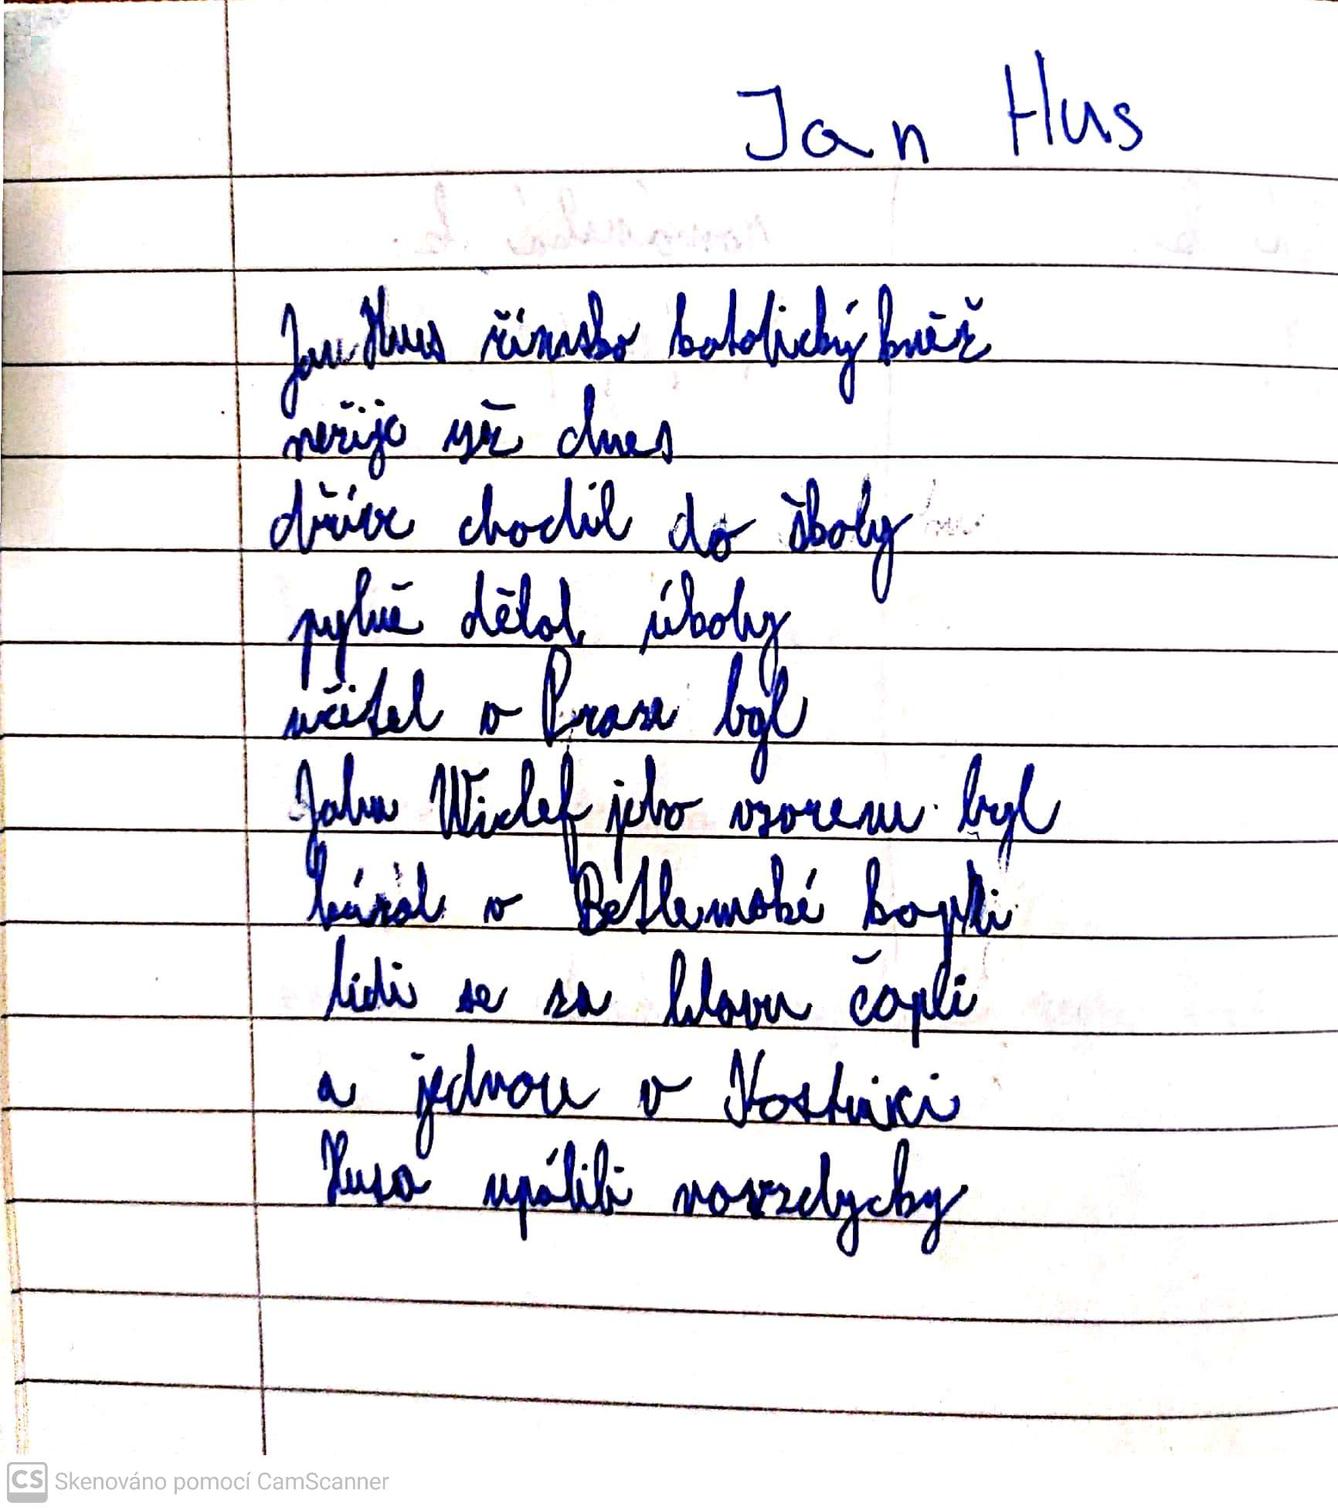 Jan Hus
Jan Hus římsko katolický kněž
nežije už dnes
dříve chodil do školy
pylně dělal úkoly
učitel v Praze byl
John Wiclef jeho vzorem byl
kázal v Betlemské kapli
lidi se za hlavu čapli
a jednou v Kostnici
Husa upálili navzdycky
CS Skenováno pomocí CamScanner